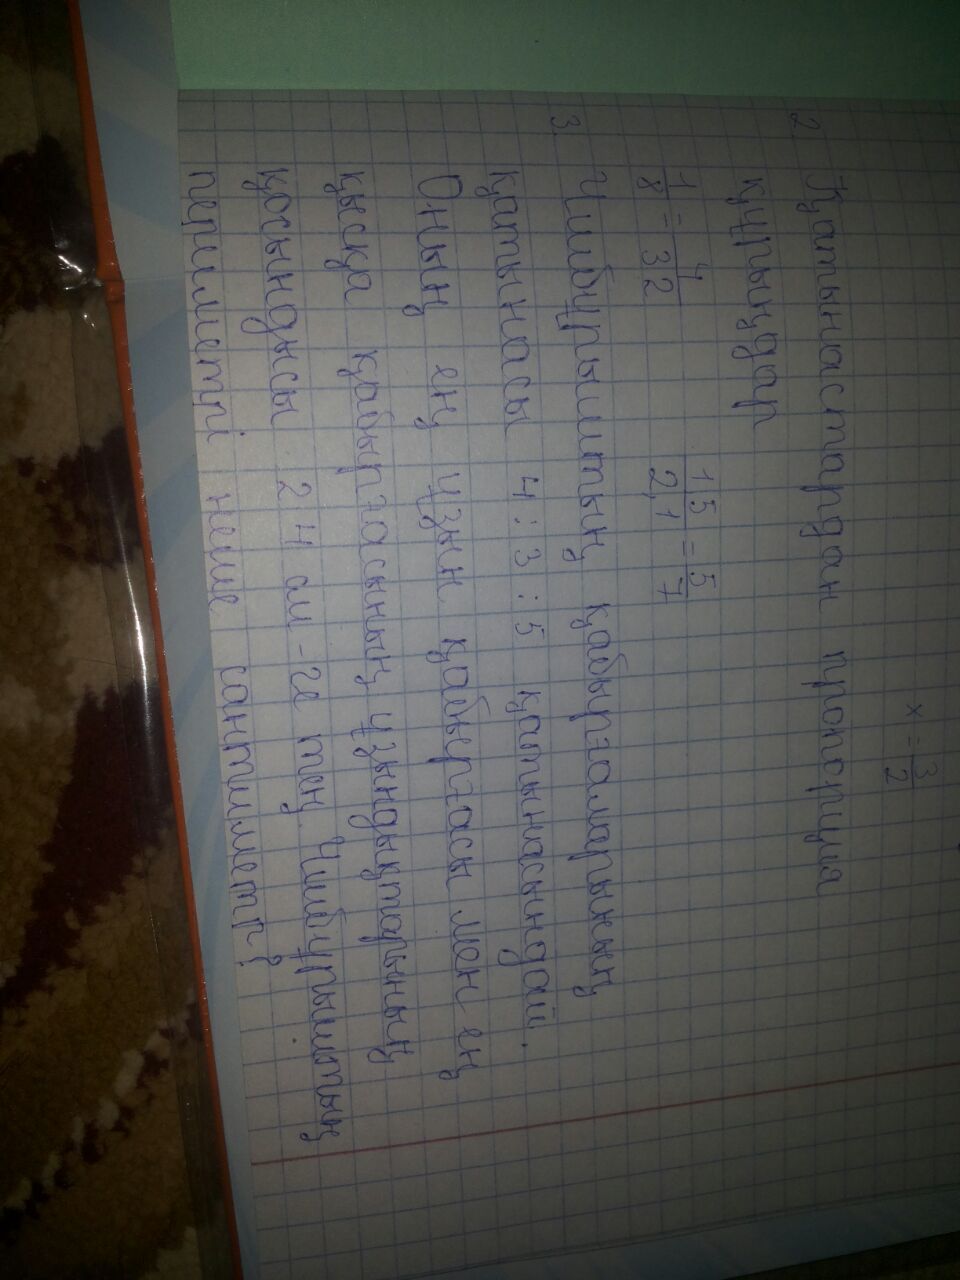 x = 3/2
2. Қатынастардан пропорция
құрыңдар
1/8 = 4/32 15/2,1 = 5/7
3. Үшбұрыштың қабырғаларының
қатынасы 4 : 3 : 5 қатынасындай.
Оның ең ұзын қабырғасы мен ең
қысқа қабырғасының ұзындықтарының
қосындысы 24 см-ге тең. Үшбұрыштың
периметрі неше сантиметр?